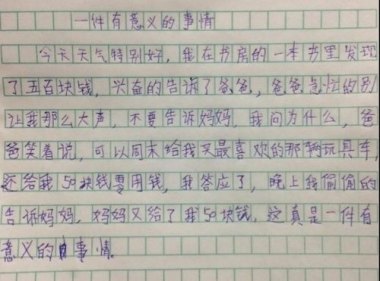 一件有意义的事情
今天天气特别好，我在书房的一本书里发现
了五百块钱，兴奋的告诉了爸爸，爸爸急忙的别
让我那么大声，不要告诉妈妈，我问为什么，爸
爸笑着说，可以周末给我买最喜欢的那辆玩具车，
还给我50块钱零用钱，我答应了，晚上我偷偷的
告诉妈妈，妈妈又给了我50块钱，这真是一件有
意义的事情